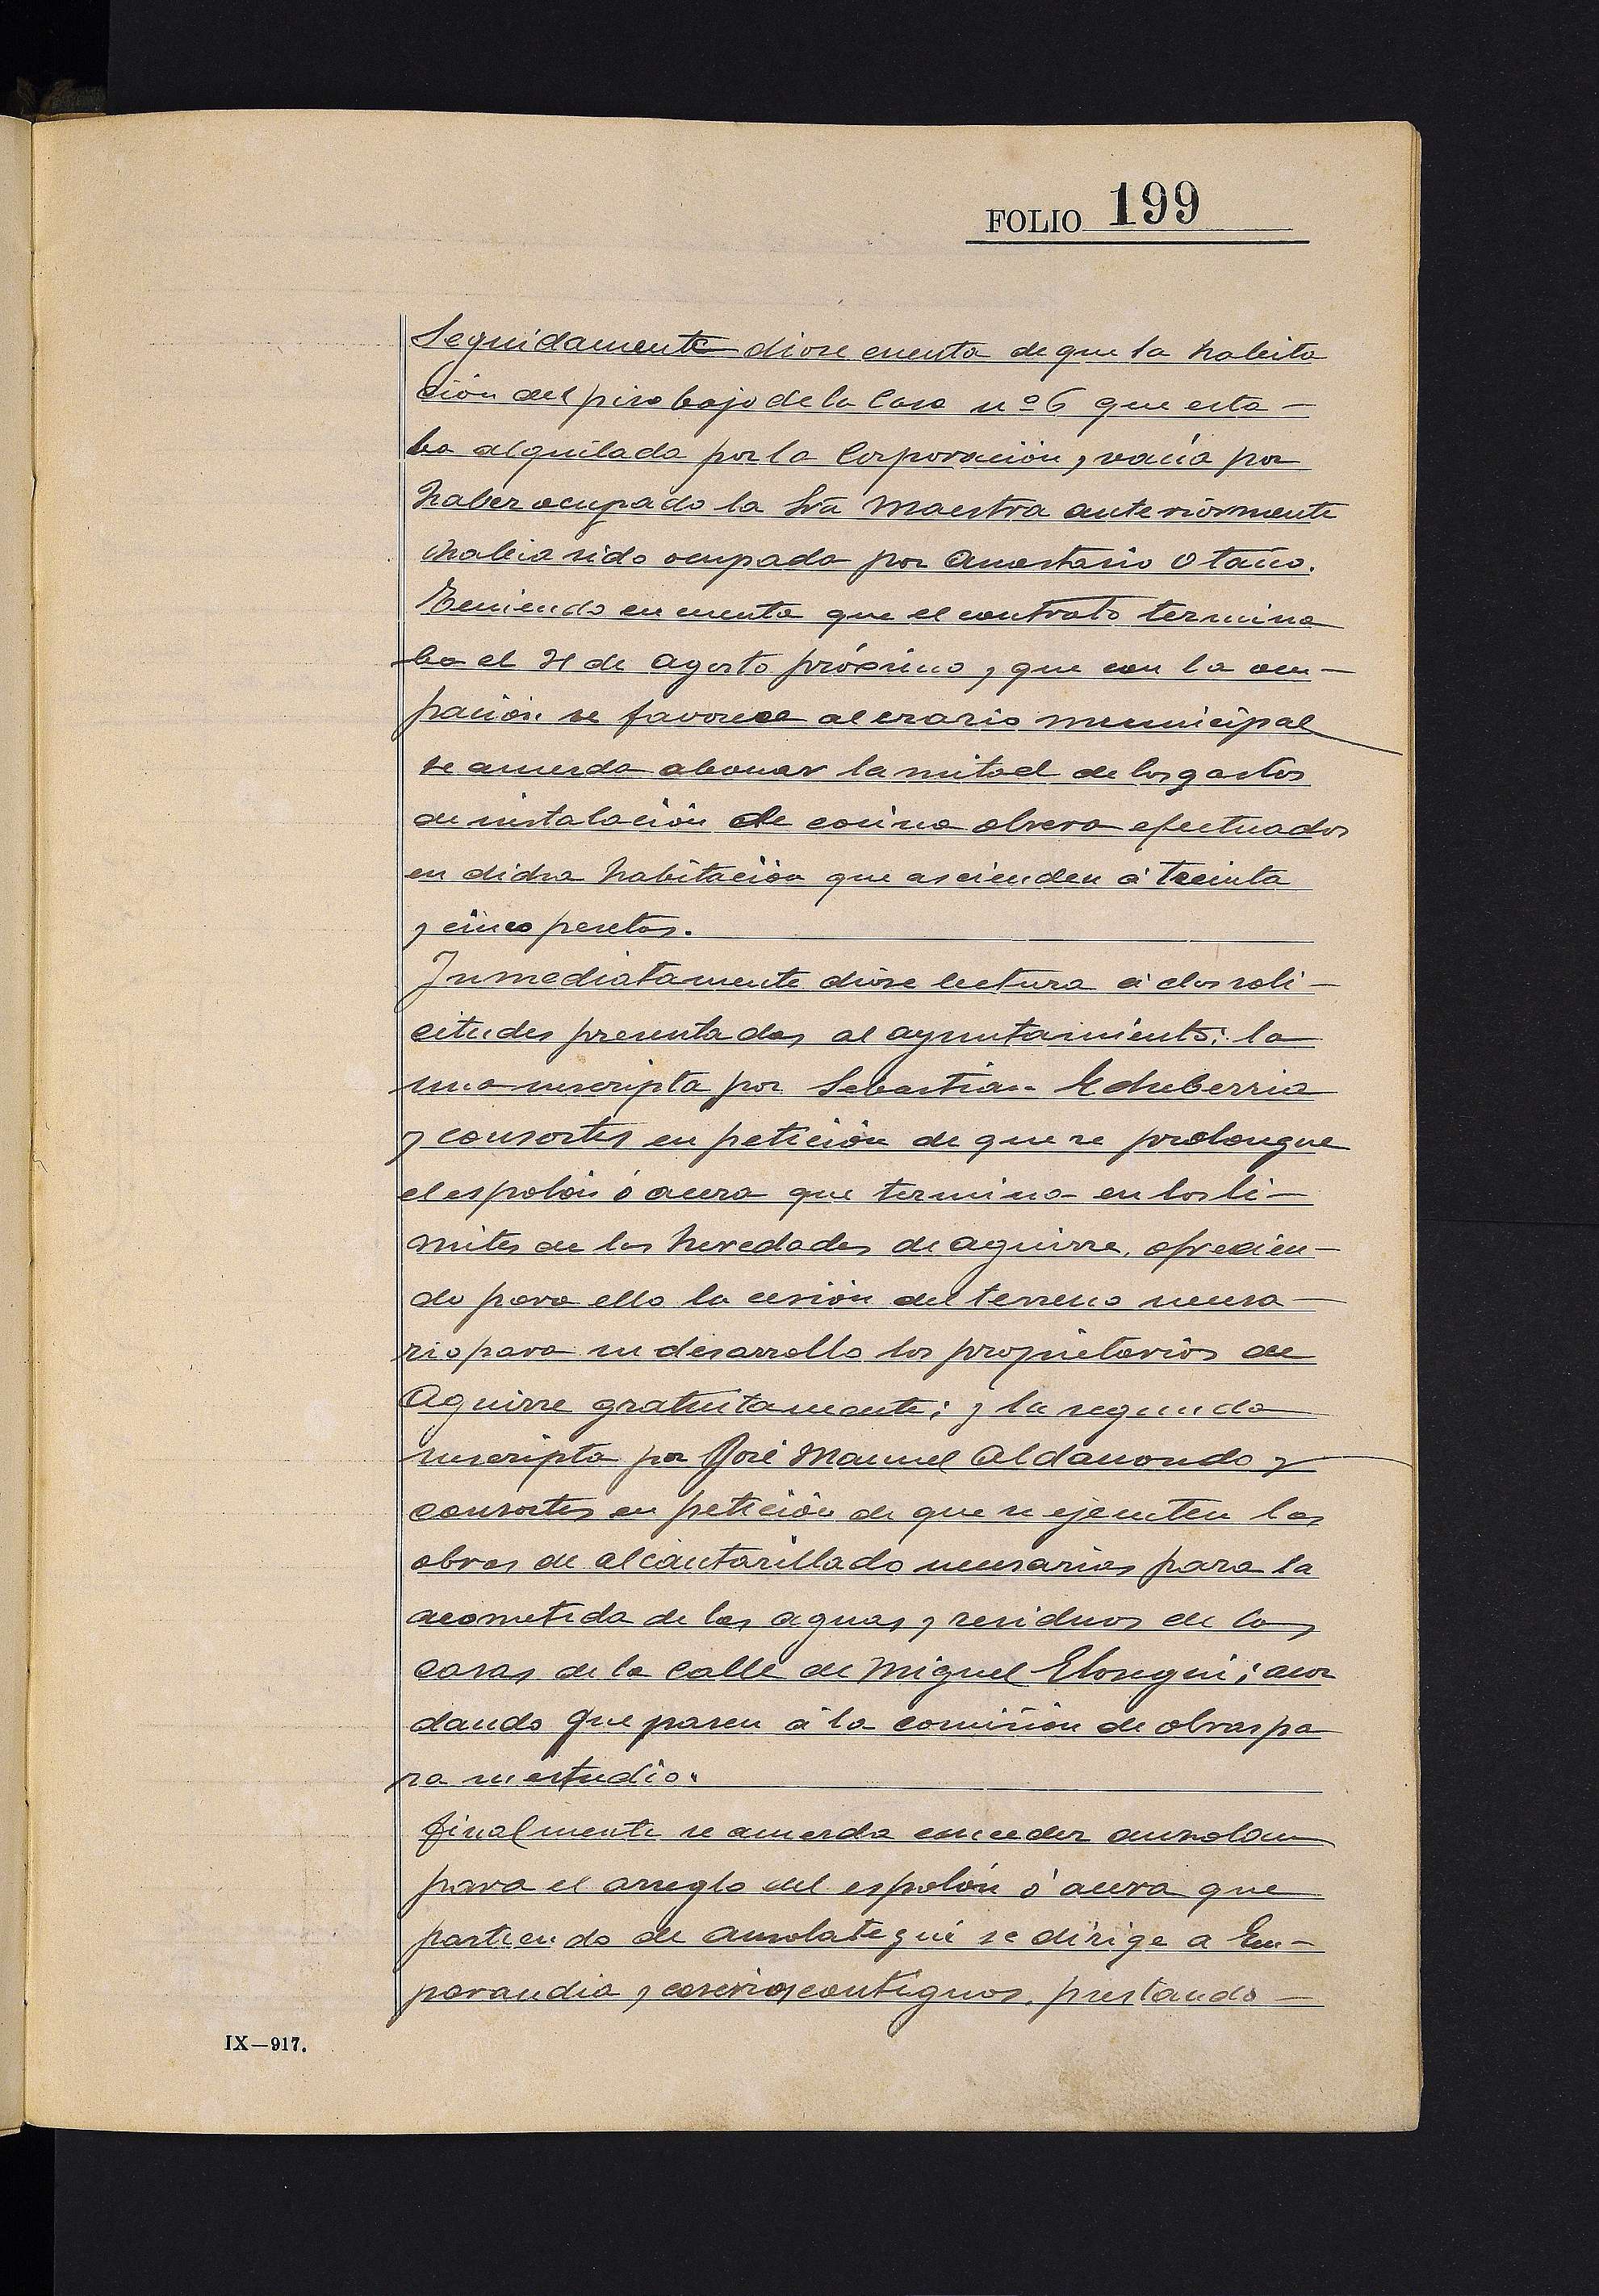 FOLIO 199
Seguidamente diose cuenta de que la habita
ción del piso bajo de la Casa nº 6 que esta-
ba alquilada por la Corporación, vacía por
haber ocupado la Sra Maestra anteriormente
habia sido ocupada por Anastasio Otaño.
Teniendo en cuenta que el contrato termina
ba el 31 de Agosto próximo, y que con la ocu-
pación se favorece al erario municipal
se acuerda abonar la mitad de los gastos
de instalación de cocina obrera efectuados
en dicha habitación que ascienden á treinta
y cinco pesetas.
Inmediatamente diose lectura á dos soli-
citudes presentadas al ayuntamiento: la
una suscripta por Sebastian Echeberria
y consortes en petición de que se prolongue
el espolón ó acera que termina en los li-
mites de las heredades de Aguirre, ofrecien-
do para ello la cesión del terreno necesa-
rio para su desarrollo los propietarios de
Aguirre gratuitamente; y la segunda
suscripta por José Manuel Aldanondo y
consortes en petición de que se ejecuten las
obras de alcantarillado necesarias para la
acometida de las aguas y residuos de las
casas de la Calle de Miguel Elosegui; acor
dando que pasen á la comisión de obras pa
ra su estudio.
Finalmente se acuerda conceder auzolan
para el arreglo del espolón ó acera que
partiendo de Auzolategui se dirige a Em-
parandia y caserios contiguos, prestando-
IX—917.